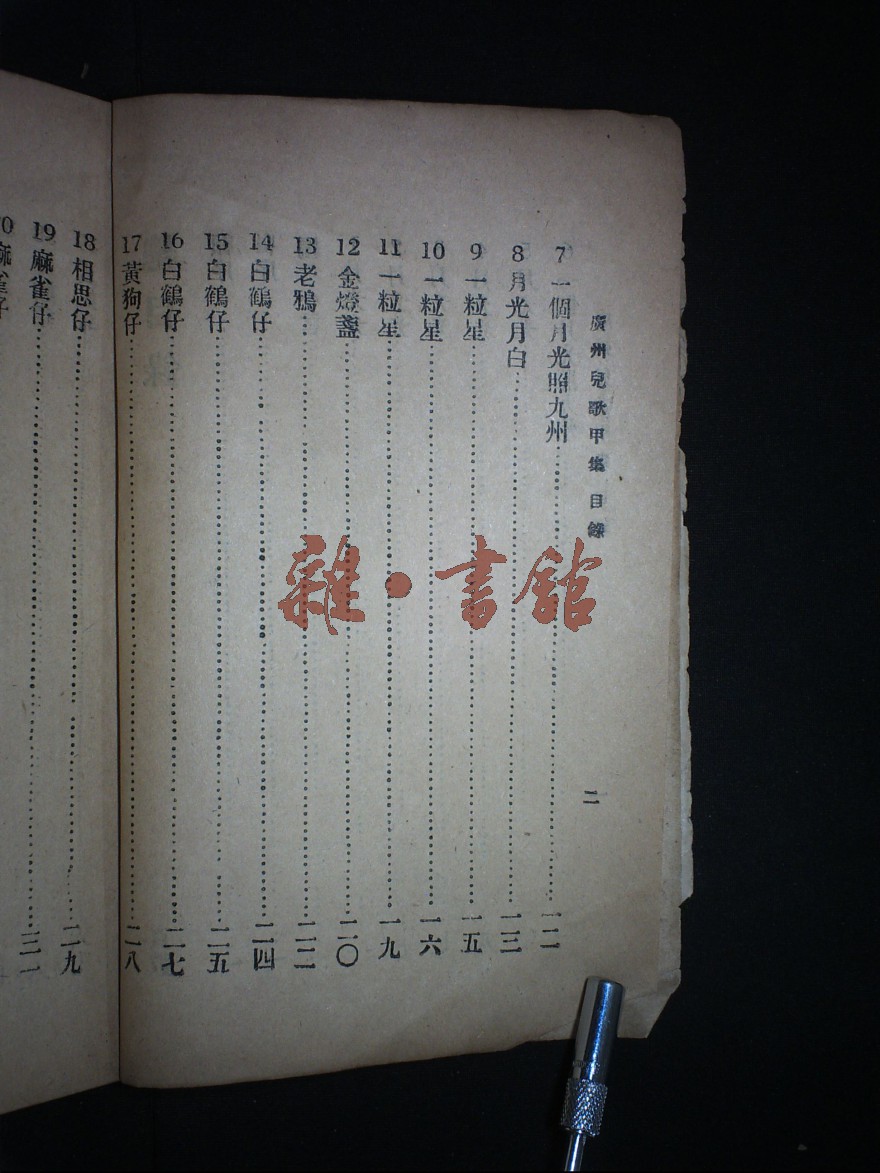 廣州兒歌甲集 目錄
二
7 一個月光照九州……一二
8 月光月白……一三
9 一粒星……一五
10 一粒星……一六
11 一粒星……一九
12 金燈盞……二〇
13 老鴉……二二
14 白鶴仔……二四
15 白鶴仔……二五
16 白鶴仔……二七
17 黃狗仔……二八
18 相思仔……二九
19 麻雀仔……三一
麻雀仔
雜·書館